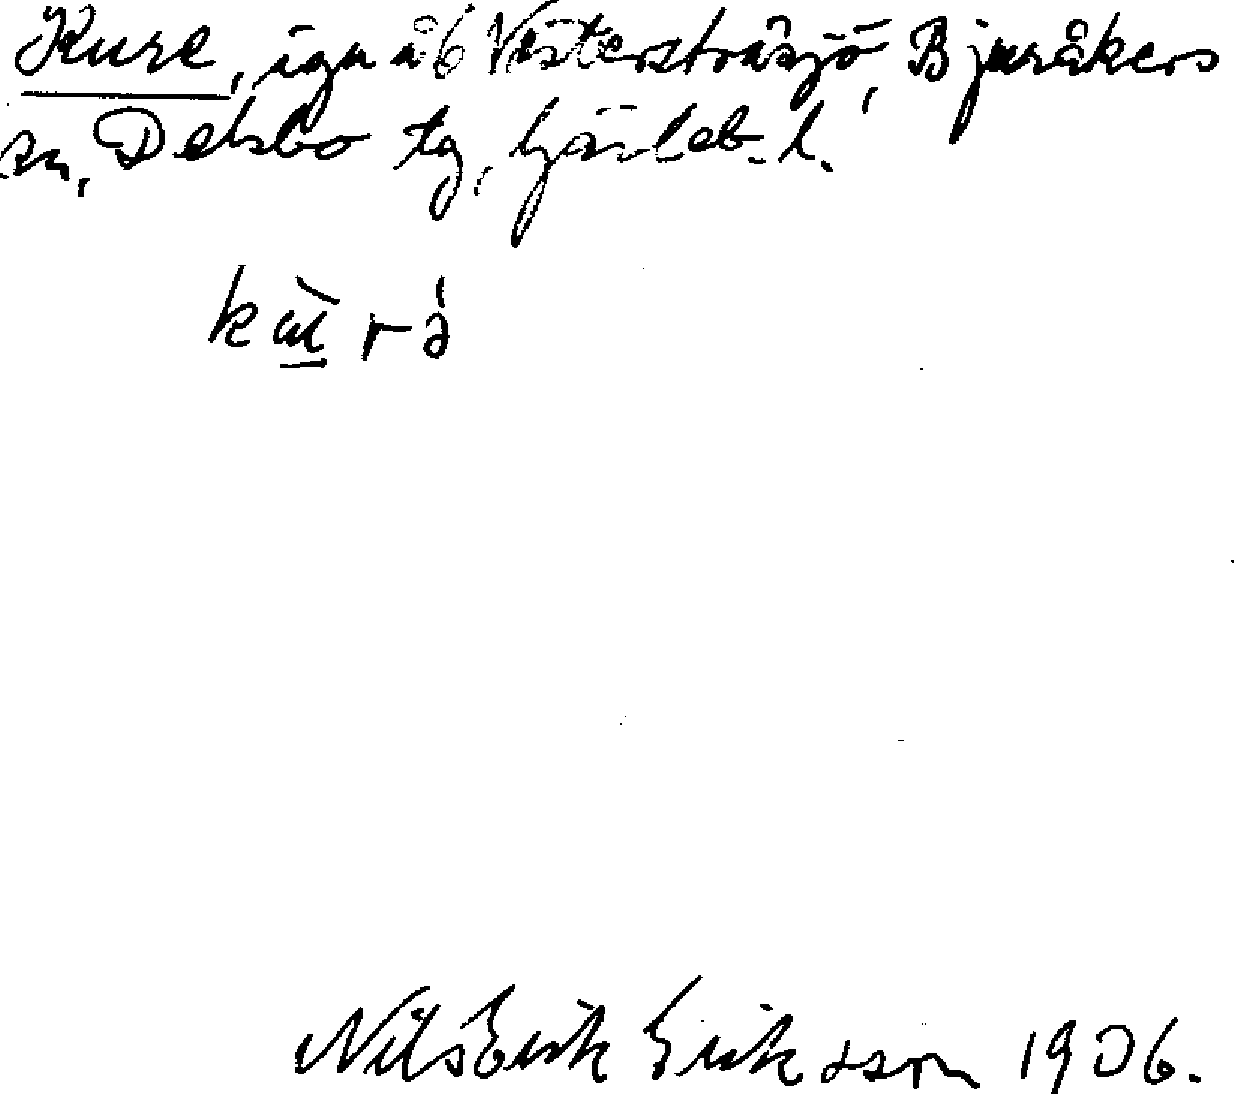 Kure, ägn å 6 Västerstråsjö, Bjuråkers
sn, Delsbo tg, Gävleb. l.
Nils Erik Eriksson 1906.